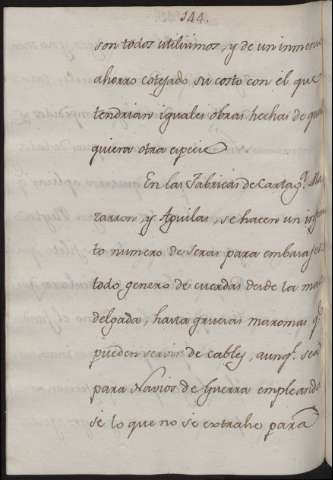 144.
son todos utilisimos, y de un inmenso
ahorro cotejado su costo con el que
tendrian iguales obras hechas de qual
quiera otra especie
En las Fabricas de Cartag.ª Ma
zarron, y Aguilas, se hacen un infini
to numero de seras para embarajes
todo genero de cuerdas desde la mas
delgada, hasta gruesas maromas q.e
pueden servir de cables, aunq.e sea
para Navios de Guerra empleando
se lo que no se extrahe para